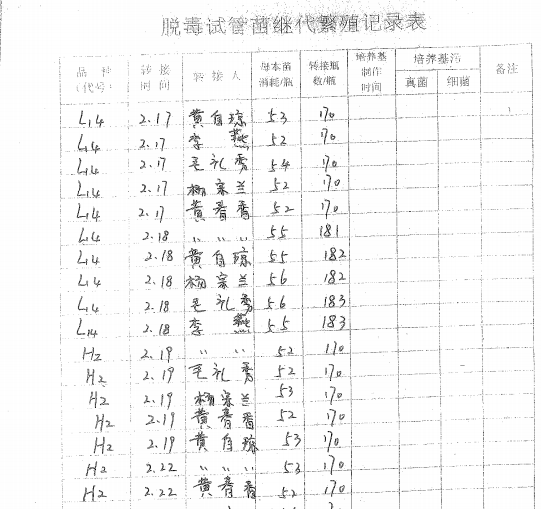 脱毒试管苗继代繁殖记录表
品种（代号） 转接时间 转接人 母本苗消耗/瓶 转接瓶数/瓶 培养基制作时间 培养基污 真菌 细菌 备注
L14 2.17 黄自琼 53 170
L14 2.17 李燕 52 170
L14 2.17 毛礼秀 54 170
L14 2.17 杨家兰 52 170
L14 2.17 黄春香 52 170
L4 2.18 〃 〃 〃 55 181
L4 2.18 黄自琼 55 182
L4 2.18 杨家兰 56 182
L4 2.18 毛礼秀 56 183
L14 2.18 李燕 55 183
H2 2.19 〃 〃 52 170
H2 2.19 毛礼秀 52 170
H2 2.19 杨家兰 53 170
H2 2.19 黄春香 52 170
H2 2.19 黄自琼 53 170
H2 2.22 〃 〃 〃 53 170
H2 2.22 黄春香 52 170